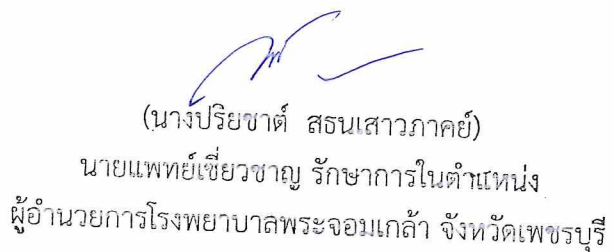 (นางปริยชาต์ สธนเสาวภาคย์)
นายแพทย์เชี่ยวชาญ รักษาการในตำแหน่ง
ผู้อำนวยการโรงพยาบาลพระจอมเกล้า จังหวัดเพชรบุรี